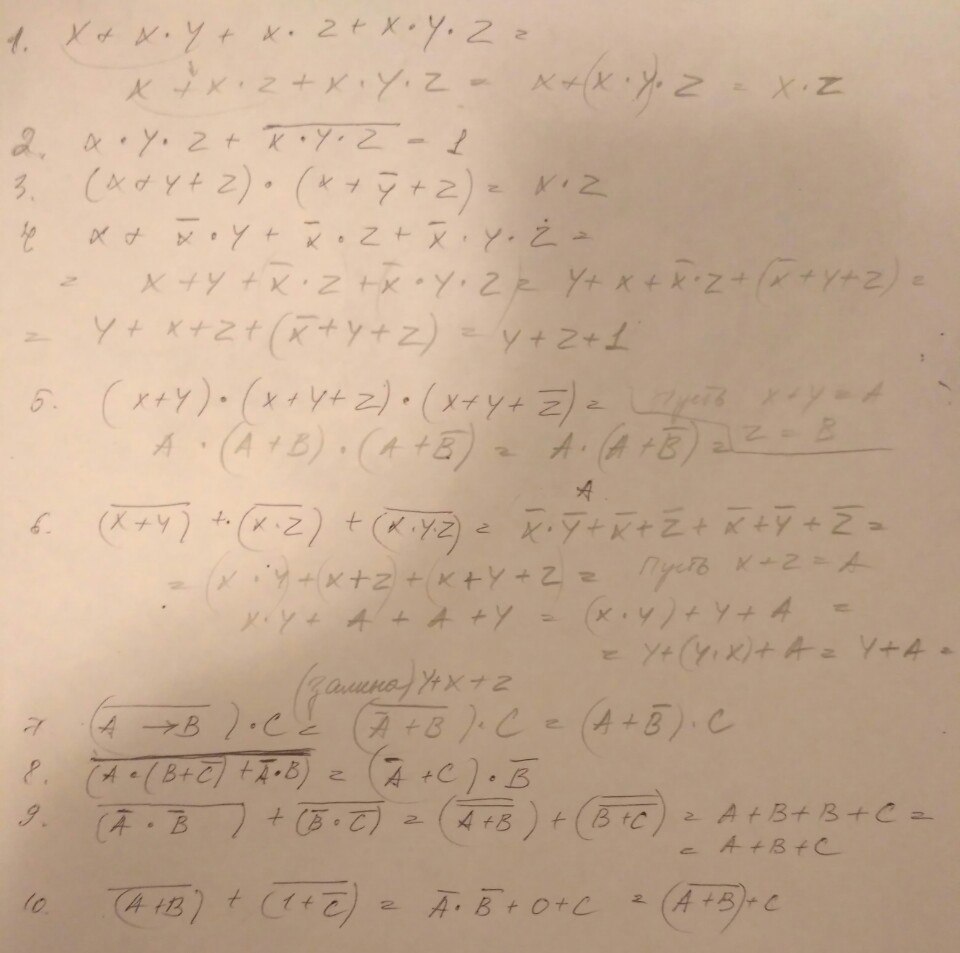 1. x + x·y + x·z + x·y·z =
x + x·z + x·y·z = x+(x·y)·z = x·z
2. x·y·z + x̅·̅y̅·̅z̅ = 1
3. (x+y+z)·(x+y̅+z) = x·z
4 x + x̅·y + x̅·z + x̅·y·z =
= x+y+x̅·z+x̅·y·z = y+x+x̅·z+(x̅+y+z) =
= y+x+z+(x̅+y+z) = y+z+1
5. (x+y)·(x+y+z)·(x+y+z̅) = Пусть x+y=A
A·(A+B)·(A+B̅) = A·(A+B̅) = z=B
A
6. (x̅+̅y̅) + (x̅·̅z̅) + (x̅·̅y̅·̅z̅) = x̅·y̅+x̅+z̅+x̅+y̅+z̅ =
= (x·y)+(x+z)+(x+y+z) = Пусть x+z=A
x·y+A+A+y = (x·y)+y+A =
= y+(y·x)+A = y+A =
y+x+z
7 (A̅ ̅→̅B̅)·C = (A̅̅+̅B̅)·C = (A+B̅)·C
8. (A̅·̅(̅B̅+̅C̅̅)̅+̅A̅̅·̅B̅) = (A̅+C)·B̅
9. (A̅̅·̅B̅̅) + (B̅̅·̅C̅̅) = (A̅̅+̅̅B̅̅)+(B̅̅+̅̅C̅̅) = A+B+B+C =
= A+B+C
10. (A̅+̅B̅) + (1̅+̅C̅̅) = A̅·B̅+0+C = (A̅+̅B̅)+C